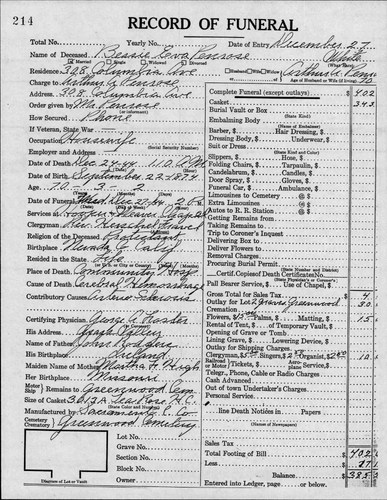 214
RECORD OF FUNERAL
Total No. Yearly No. Date of Entry December 27
Name of Deceased Bessie Penrose White
Married Single Widowed Divorced (What Race)
Residence 308 Columbia Ave Husband Wife or Widow of Arthur
Charge to Arthur Penrose Age of Husband or Wife (if living) 70
Address 308 Columbia Ave
Order given by Mr Penrose
How Secured Phone
If Veteran, State War
Occupation Housewife
(Social Security Number)
Employer and Address
Date of Death Dec 24-44 1:10 P.M.
Date of Birth September 22-1874
Age 70 3 2
Date of Funeral Wed Dec 27-44 2:00
Services at Chapel
Clergyman Rev. Herschel
Religion of the Deceased Protestant
Birthplace Nevada City
Resided in the State Life
Place of Death Community Hosp
Cause of Death Cerebral Hemorrhage
Contributory Causes Arterio Sclerosis
Certifying Physician George A. Foster
His Address Grass Valley
Name of Father John Rodgers
His Birthplace Ireland
Maiden Name of Mother Martha High
Her Birthplace Missouri
Motor Ship Remains to Greenwood Cem
Size of Casket
(State Color and Number)
Manufactured by Sacramento C. Co
Cemetery Crematory Greenwood Cemetery
Lot No.
Grave No.
Section No.
Block No.
Owner
Diagram of Lot or Vault
Complete Funeral (except outlays) $ 402
Casket 345
Burial Vault or Box
(State Kind)
Embalming Body
(Name of Embalmer)
Barber, $ Hair Dressing, $
Dressing Body, $ Underwear, $
Suit or Dress
(State Kind and Color)
Slippers, $ Hose, $
Folding Chairs, $ Tarpaulin, $
Candelabrum, $ Candles, $
Door Spray, $ Gloves, $
Funeral Car, $ Ambulance, $
Limousines to Cemetery @ $
Extra Limousines @ $
Autos to R. R. Station @ $
Getting Remains
Taking Remains to
Trip to Coroner's Inquest
Delivering Box to
Deliver Flowers to
Removal Charges
Procuring Burial Permit
(State District No.)
Certif. Copies of Death Certificates No.
(State How Many)
Pall Bearer Service, $ Use of Chapel, $
Gross Total for Sales Tax $
Outlay for Lot Grave Greenwood 30
Cremation
Flowers, $ Palms, $ Matting, $ 15
Rental of Tent, $ of Temporary Vault, $
Opening of Grave or Tomb
Lining Grave, $ Lowering Device, $
Outlay for Shipping Charges
Clergyman, $ Singers, $ Organist, $ 10
Railroad or Motor Tickets, $ Plane Service, $
Telegr., Phone, Cable or Radio Charges
Cash Advanced
Out of town Undertaker's Charges
Personal Service
line Death Notices in Papers
(Names of Newspapers)
Sales Tax
Total Footing of Bill $ 402
Less $
Balance $ 385
Entered into Ledger, page or below.